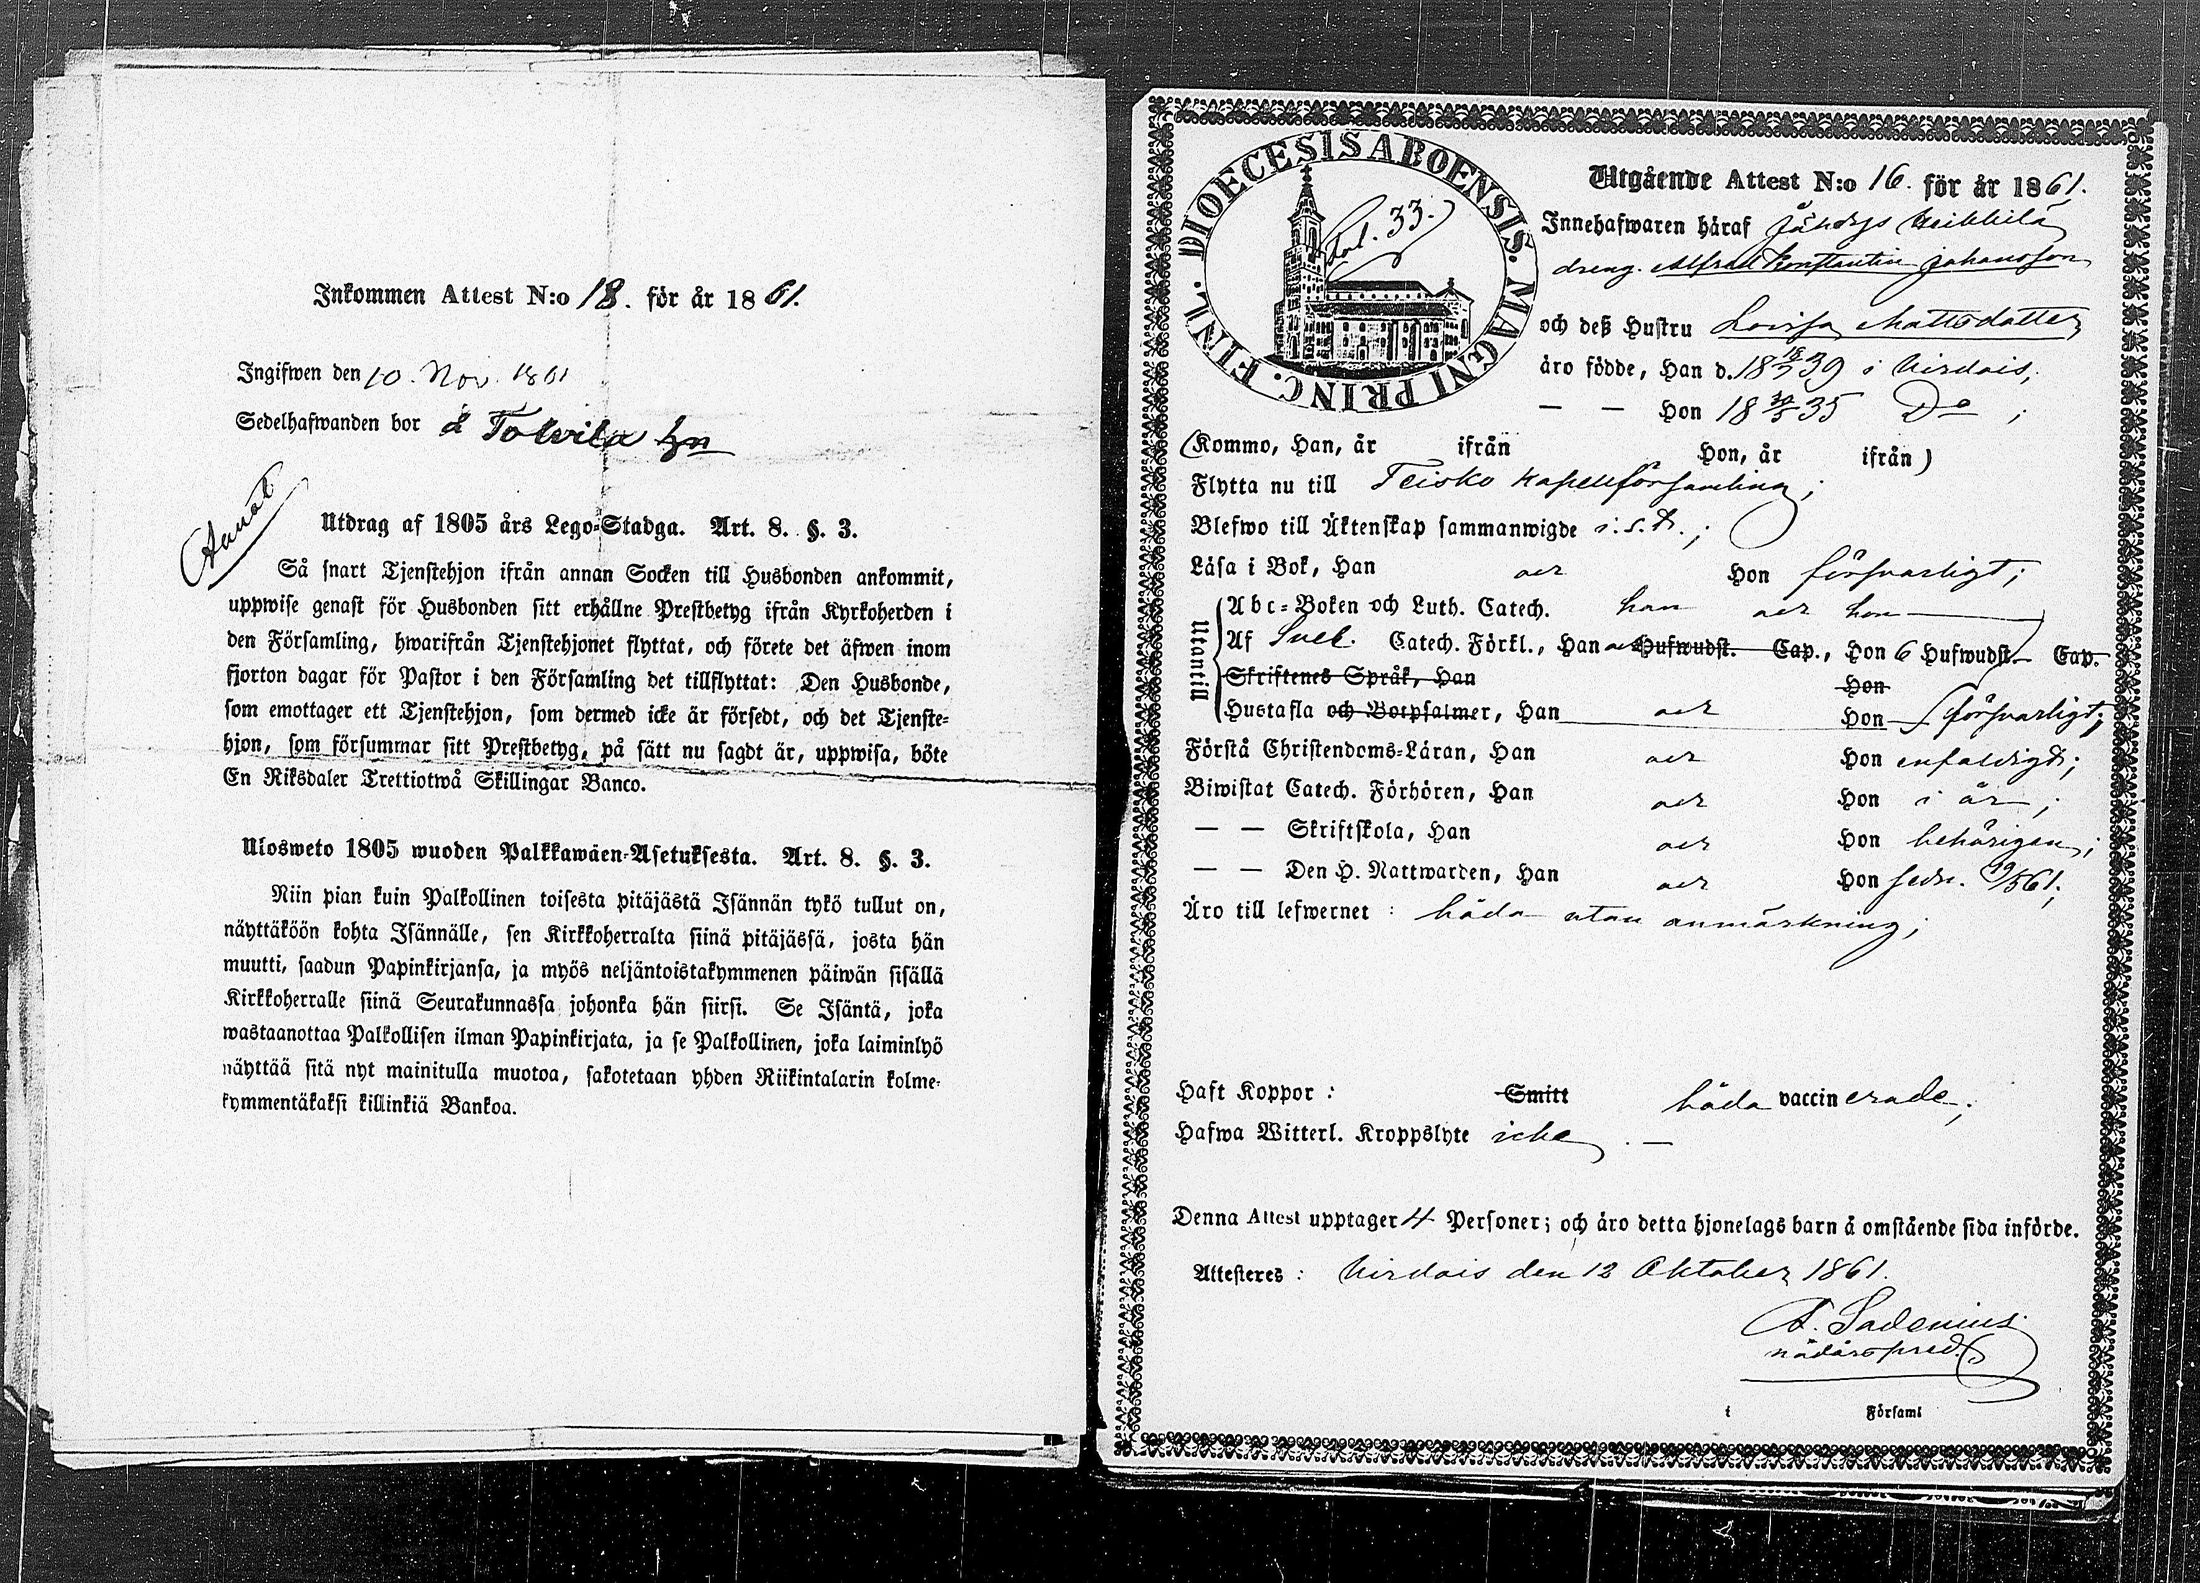 Inkommen Attest N:o 18. för år 1861.
Ingifwen den 10. Nov. 1861
Sedelhafwanden bor å Tolvila hn
Utdrag af 1805 års Lego-Stadga. Art. 8. §. 3.
Så snart Tjenstehjon ifrån annan Socken till Husbonden ankommit,
uppwise genast för Husbonden sitt erhållne Prestbetyg ifrån Kyrkoherden i
den Församling, hwarifrån Tjenstehjonet flyttat, och förete det äfwen inom
fjorton dagar för Pastor i den Församling det tillflyttat: Den Husbonde,
som emottager ett Tjenstehjon, som dermed icke är försedt, och det Tjenste-
hjon, som försummar sitt Prestbetyg, på sätt nu sagdt är, uppwisa, böte
En Riksdaler Trettiotwå Skillingar Banco.
Ulosweto 1805 wuoden Palkkawäen-Asetuksesta. Art. 8. §. 3.
Niin pian kuin Palkollinen toisesta pitäjästä Isännän tykö tullut on,
näyttäköön kohta Isännälle, sen Kirkkoherralta siinä pitäjässä, josta hän
muutti, saadun Papinkirjansa, ja myös neljäntoistakymmenen päiwän sisällä
Kirkkoherralle siinä Seurakunnassa johonka hän siirsi. Se Isäntä, joka
wastaanottaa Palkollisen ilman Papinkirjata, ja se Palkollinen, joka laiminlyö
näyttää sitä nyt mainitulla muotoa, sakotetaan yhden Riikintalarin kolme-
kymmentäkaksi killinkiä Bankoa.
DIOECESIS ABOENSIS. MAGNI PRINC. FINL.
fol. 33.
Utgående Attest N:o 16. för år 1861.
Innehafwaren häraf Jähdys Heikkilä
dreng. Alfred Konstantin Johansson
och deß Hustru Lovisa Mattsdotter
äro födde, Han d. 18 18/7 39 i Virdois;
— — Hon 18 35 Do ;
(Kommo, Han, år ifrån Hon, år ifrån)
Flytta nu till Teisko kapellförsamling;
Blefwo till Äktenskap sammanwigde ;
Läsa i Bok, Han och Hon försvarligt;
Utantill
Abc-Boken och Luth. Catech. han och hon
Af Sveb. Catech. Förkl., Han och Hufwudst. Cap., Hon 6 Hufwudst. Cap.
Skriftenes Språk, Han Hon
Hustafla och Botpsalmer, Han och Hon försvarligt;
Förstå Christendoms-Läran, Han och Hon enfaldigt;
Biwistat Catech. Förhören, Han och Hon i år;
— — Skriftskola, Han och Hon behörigen;
— — Den H. Nattwarden, Han och Hon sedn. 19/5 61;
Äro till lefwernet : båda utan anmärkning;
Haft Koppor : Smitt båda vaccinerade;
Hafwa Witterl. Kroppslyte icke. —
Denna Attest upptager 4 Personer; och äro detta hjonelags barn å omstående sida införde.
Attesteres : Virdois den 12 Oktober 1861.
A. Sadenius.
nådårspred.
i Församl